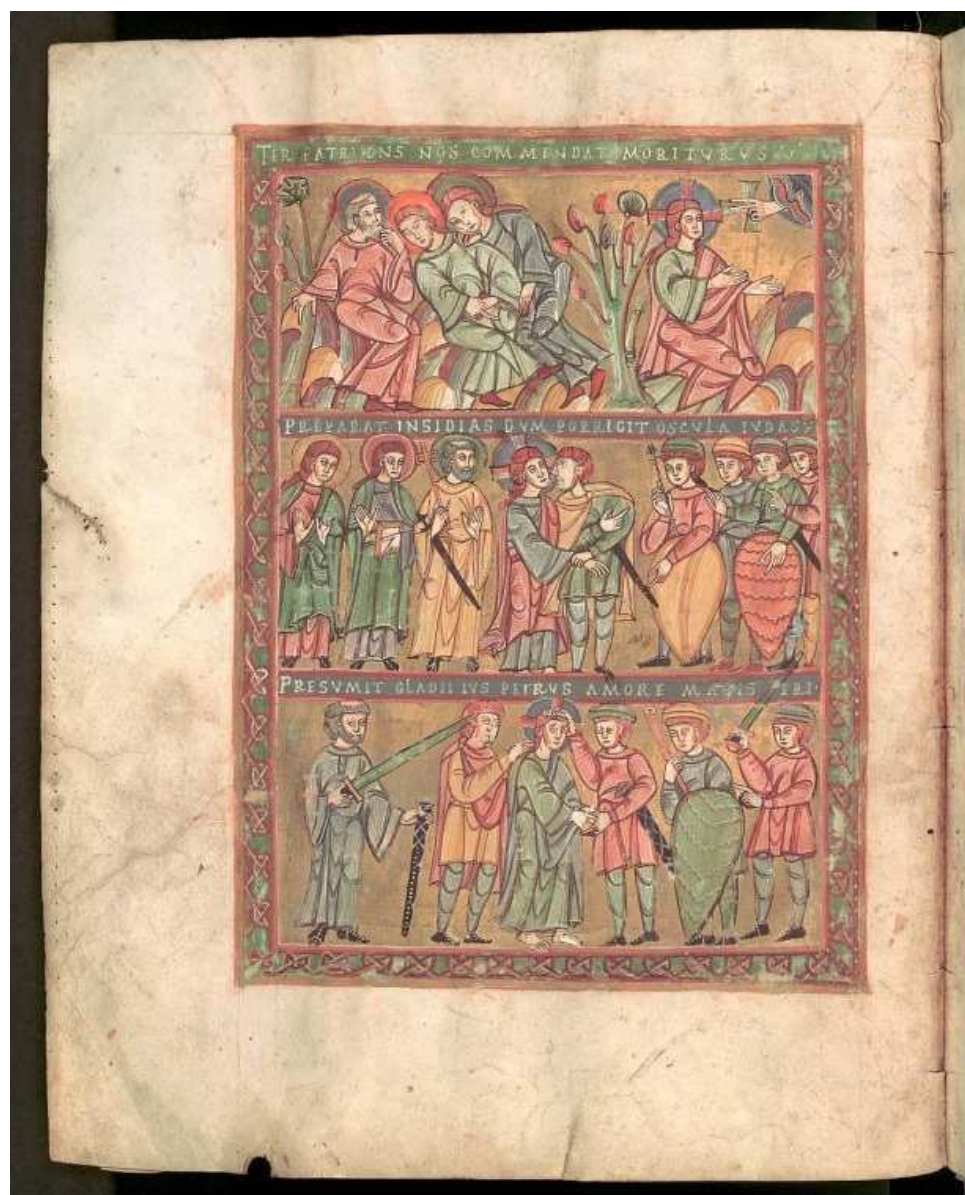 TER PATRI NOS COMMENDAT MORITURUS
PREPARAT INSIDIAS DVM PORRIGIT OSCULA IVDAS
PRESVMIT GLADII PETRVS AMORE MAGIS